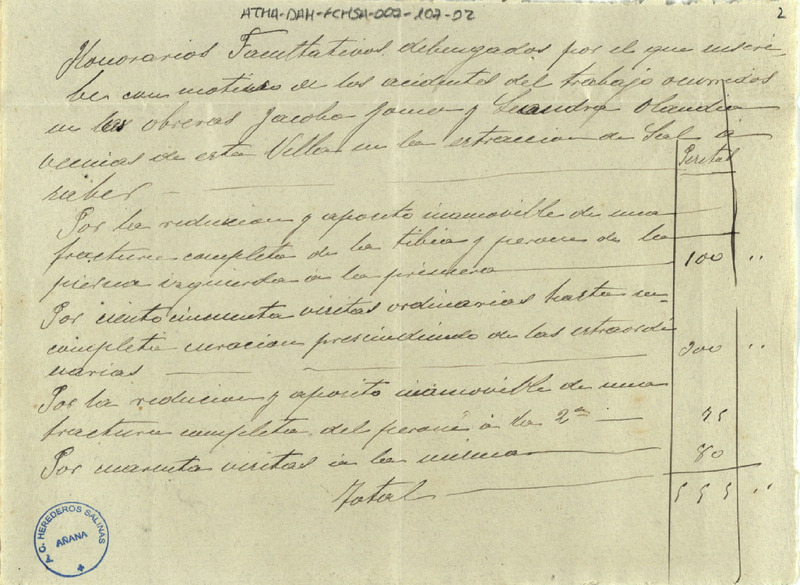 ATHA-DAH-FCMSA-002-107-02
2
Honorarios Facultativos debengados por el que suscri-
be con motivo de los acidentes del trabajo ocurridos
en las obreras Jacoba y Leandra
vecinas de esta Villa en la estraccion de Sal á
saber
Pesetas
Por la reducion y aposito inamovible de una
fractura completa de la tibia y peroné de la
pierna izquierda á la primera 100 "
Por ciento cincuenta visitas ordinarias hasta su
completa curacion prescindiendo de las estraordi
narias 300 "
Por la reducion y aposito inamovible de una
fractura completa del peroné á la 2ª 75
Por cuarenta visitas á la misma 80
Total 555 "
A.C. HEREDEROS SALINAS
AÑANA